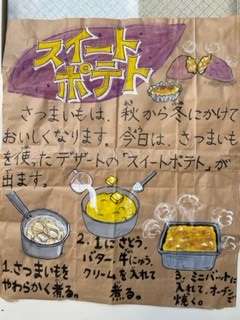 スイート
ポテト
さつまいもは、秋から冬にかけて
おいしくなります。今日は、さつまいも
を使ったデザートの「スイートポテト」が
出ます。
1.さつまいもを
やわらかく煮る。
2.1にさとう、
バター、牛にゅう、
クリームを入れて
煮る。
3.ミニバットに
入れて、オーブンで
焼く。